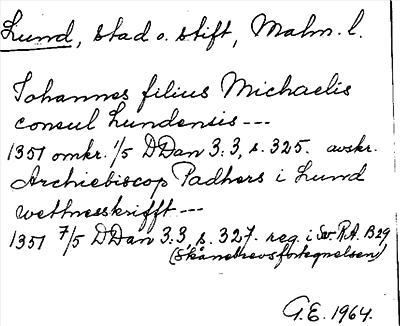 Lund, stad o. stift, Malm. l.
Johannes filius Michaelis
consul Lundensis ---
1351 omkr. 1/5 DDan 3:3, s. 325. avskr.
Archiebiscop Padhers i Lund
wettnesskrifft ---
1351 7/5 DDan 3:3, s. 327. reg. i Sv. R.A. B29
(Skånebrevsförtegnelsen)
G.E. 1964.